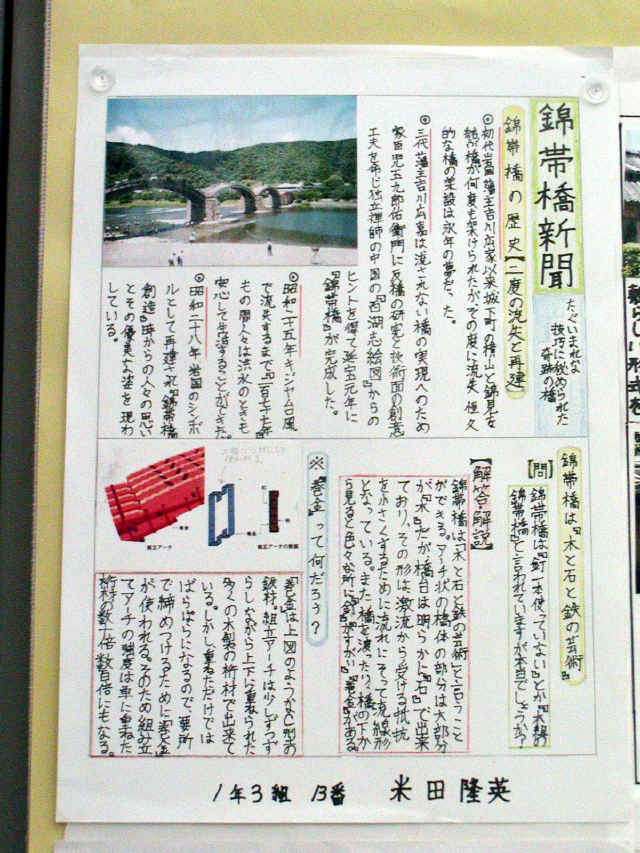 錦帯橋新聞
たぐいまれな
技巧に秘められた
奇跡の橋
錦帯橋の歴史【二度の流失と再建】
◎初代岩国藩主吉川広家以来城下町の横山と錦見を
結ぶ橋が何度も架けられたが、その度に流失 恒久
的な橋の架設は永年の夢だった。
◎三代藩主吉川広嘉は流されない橋の実現へのため
家臣児玉九郎右衛門に反橋の研究と技術面の創意
工夫を命じ独立禅師の中国の『西湖志絵図』からの
ヒントを得て延宝元年に
『錦帯橋』が完成した。
◎昭和二十五年キジヤ台風
で流失するまで『二百七十六年』
もの間人々は洪水のときも
安心して生活することができた。
◎昭和二十八年岩国のシンボ
ルとして再建され『錦帯橋
創造』時からの人々の思い
とその優美な姿を現わ
している。
錦帯橋は、『木と石と鉄の芸術』
【問】
錦帯橋は、『釘一本使っていない』とか『木製の
錦帯橋』と言われていますが本当でしょうか?
【解答・解説】
錦帯橋は『木と石と鉄の芸術』と言うこと
ができる。アーチ状の橋体の部分は大部分
が『木』だが橋台は明らかに『石』で出来
ており、その形は激流から受ける抵抗
を小さくするために流れにそって流線形
となっている。また、橋を渡ったり、橋の下か
ら見ると色々な所に『釘』『かすがい』『巻金』がある。
※『巻金』って何だろう?
『巻金』は上図のようなC型の
鉄材。組立アーチは少しずつず
らしながら上下に重ねられた
多くの木製の桁材で出来て
いる。しかし、重ねただけでは
ばらばらになるので、要所
で締めつけるために『巻金』
が使われる。そのため組み立
てアーチの強度は単に重ねた
桁材の数十倍、数百倍にもなる。
巻金
組立アーチ
巻金
組立アーチの断面
1年3組 13番 米田隆英